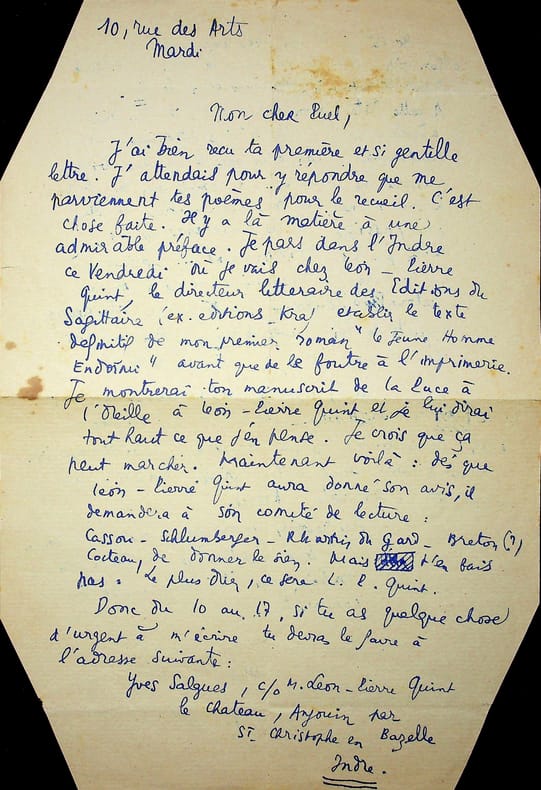 10, rue des Arts
Mardi
Mon cher Puel,
J'ai bien reçu ta première et si gentille
lettre. J'attendais pour y répondre que me
parviennent tes poèmes pour le recueil. C'est
chose faite. Il y a là matière à une
admirable préface. Je pars dans l'Indre
ce Vendredi où je vais chez Léon-Pierre
Quint, le directeur littéraire des Editions du
Sagittaire (ex. editions Kra) établir le texte
définitif de mon premier roman "le Jeune Homme
Endormi" avant que de le foutre à l'imprimerie.
Je montrerai ton manuscrit de la Puce à
l'Oreille à Léon-Pierre Quint et je lui dirai
tout haut ce que j'en pense. Je crois que ça
peut marcher. Maintenant voilà : dès que
Léon-Pierre Quint aura donné son avis, il
demandera à son comité de lecture :
Cassou - Schlumberger - R. Martin du Gard - Breton (?)
Cocteau, de donner le sien. Mais t'en fais
pas : Le plus dur, ce sera L. P. Quint.
Donc du 10 au 17, si tu as quelque chose
d'urgent à m'écrire tu devras le faire à
l'adresse suivante :
Yves Salgues, c/o M. Léon-Pierre Quint
le Chateau, Anjouin par
St Christophe en Bazelle
Indre.